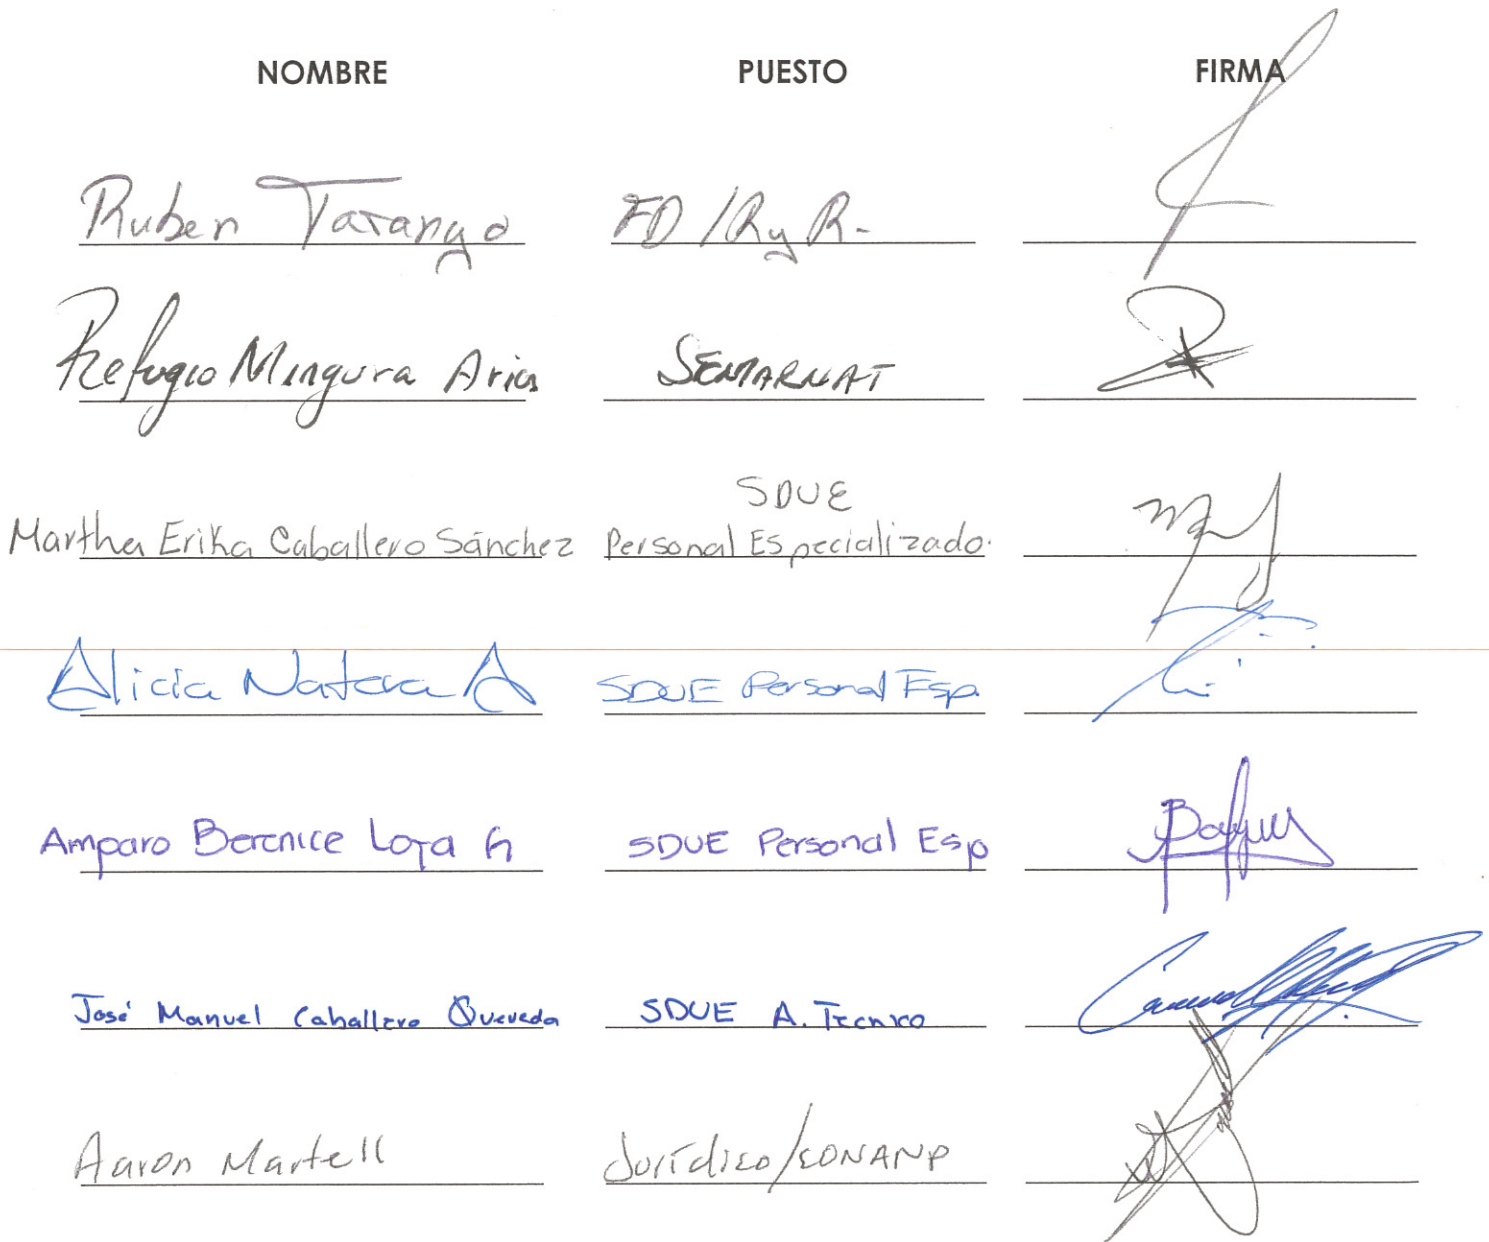 NOMBRE PUESTO FIRMA
Ruben Tarango FD / R y R.
Refugio Mingura Arias SEMARNAT
SDUE
Martha Erika Caballero Sánchez Personal Especializado.
Alicia Natera A SDUE Personal Esp.
Amparo Berenice Loya G SDUE Personal Esp
José Manuel Caballero Quevedo SDUE A. Tecnico
Aaron Martell Jurídico/CONANP